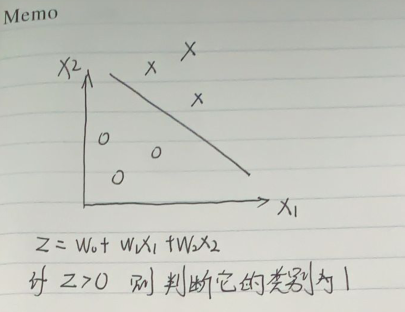 Memo
X2
X X
X
O
O
O
X1
Z = W0 + W1X1 + W2X2
Z>0 则 判断它的类别为1